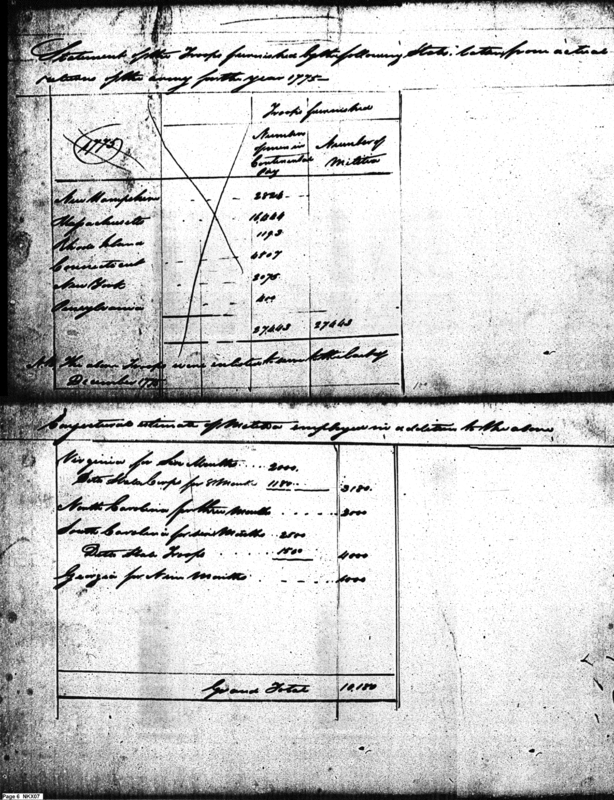 Statement of the Troops furnished by the following States taken from actual
returns of the army for the year 1775
1775
Troops furnished
Number of men in Continental Pay
Number of Militia
New Hampshire 2824
Massachusetts 16,444
Rhode Island 1193
Connecticut 4507
New York 2075
Pensylvania 400
27443 27443
N.B. The above Troops were enlisted to serve to the last of
December 1775
Conjectural estimate of Militia employed in addition to the above
Virginia for Six Months 2000
Ditto State Corps for Months 1180 3180
North Carolina for three Months 2000
South Carolina for six Months 2500
Ditto State Troops 1500 4000
Georgia for Nine Months 1000
Grand Total 10,180
Page 6 NKX07